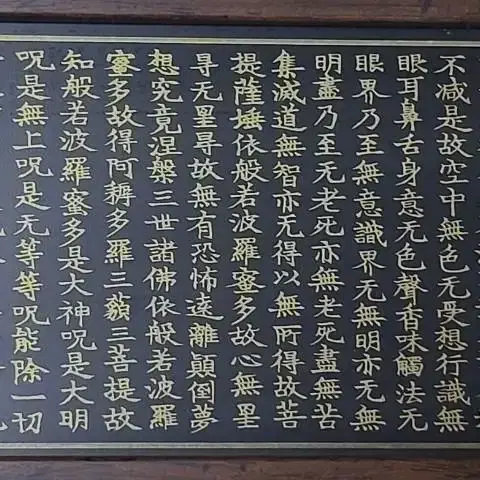 不減是故空中無色无受想行識無
眼耳鼻舌身意无色聲香味觸法无
眼界乃至無意識界无無明亦无無
明盡乃至无老死亦無老死盡無苦
集滅道無智亦无得以無所得故菩
提薩埵依般若波羅蜜多故心無罣
㝵无罣㝵故無有恐怖遠離顛倒夢
想究竟涅槃三世諸佛依般若波羅
蜜多故得阿耨多羅三藐三菩提故
知般若波羅蜜多是大神呪是大明
呪是無上呪是无等等呪能除一切